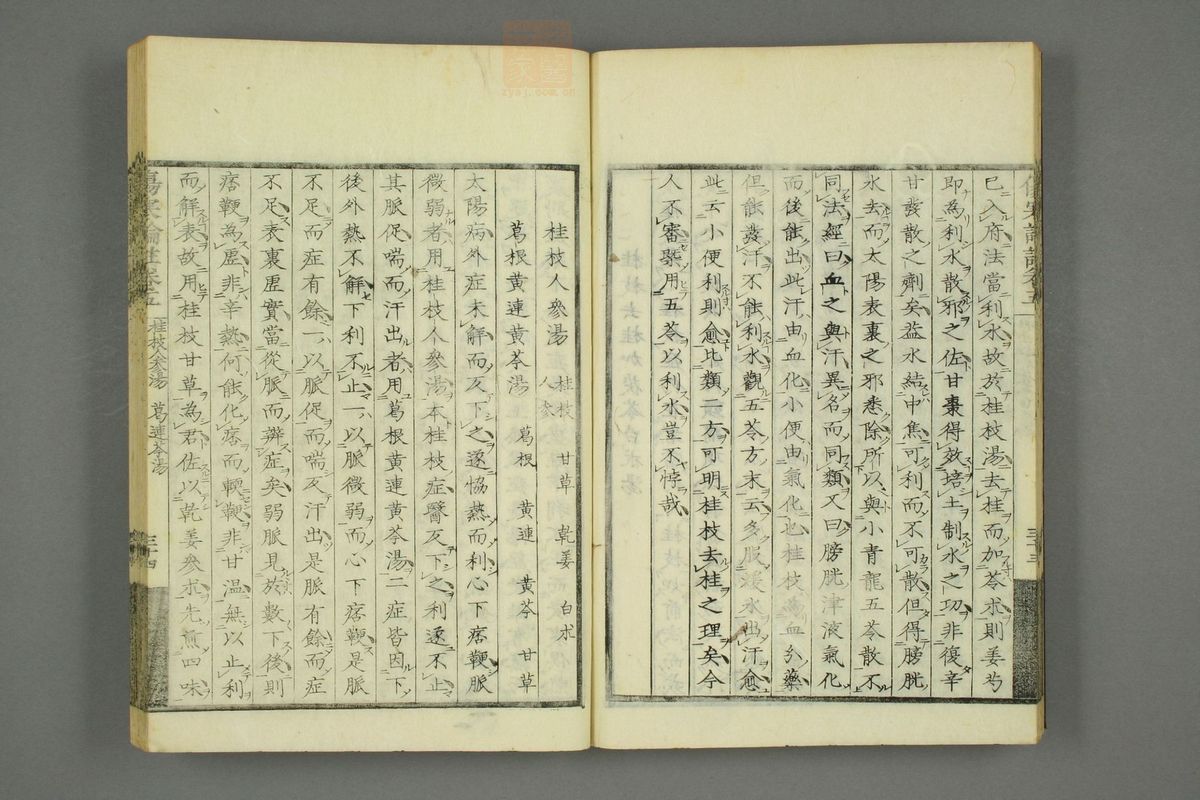 已入府法當利水故於桂枝湯去桂而加苓朮則姜芍
即為利水散邪之佐甘棗得效培土制水之功非復辛
甘發散之劑矣蓋水結中焦可利而不可散但得膀胱
水去而太陽表裏之邪悉除所以與小青龍五苓散不
同法經曰血之與汗異名而同類又曰膀胱津液氣化
而後能出此汗由血化小便由氣化也桂枝為血分藥
但能發汗不能利水觀五苓方末云多服煖水出汗愈
此云小便利則愈比類二方可明桂枝去桂之理矣今
人不審槩用五苓以利水豈不悖哉
桂枝人參湯 桂枝 甘草 乾姜 白朮 人參
葛根黃連黃芩湯 葛根 黃連 黃芩 甘草
太陽病外症未解而反下之遂協熱而利心下痞鞕脈
微弱者用桂枝人參湯本桂枝症醫反下之利遂不止
其脈促喘而汗出者用葛根黃連黃芩湯二症皆因下
後外熱不解下利不止一以脈微弱而心下痞鞕是脈
不足而症有餘一以脈促而喘反汗出是脈有餘而症
不足表裏虛實當從脈而辨症矣弱脈見於數下後則
痞鞕為虛非辛熱何能化痞而輭鞕非甘溫無以止利
而解表故用桂枝甘草為君佐以乾姜參朮先煎四味
傷寒論註卷五 桂枝人參湯 葛連芩湯 三十四
zysj.com.cn